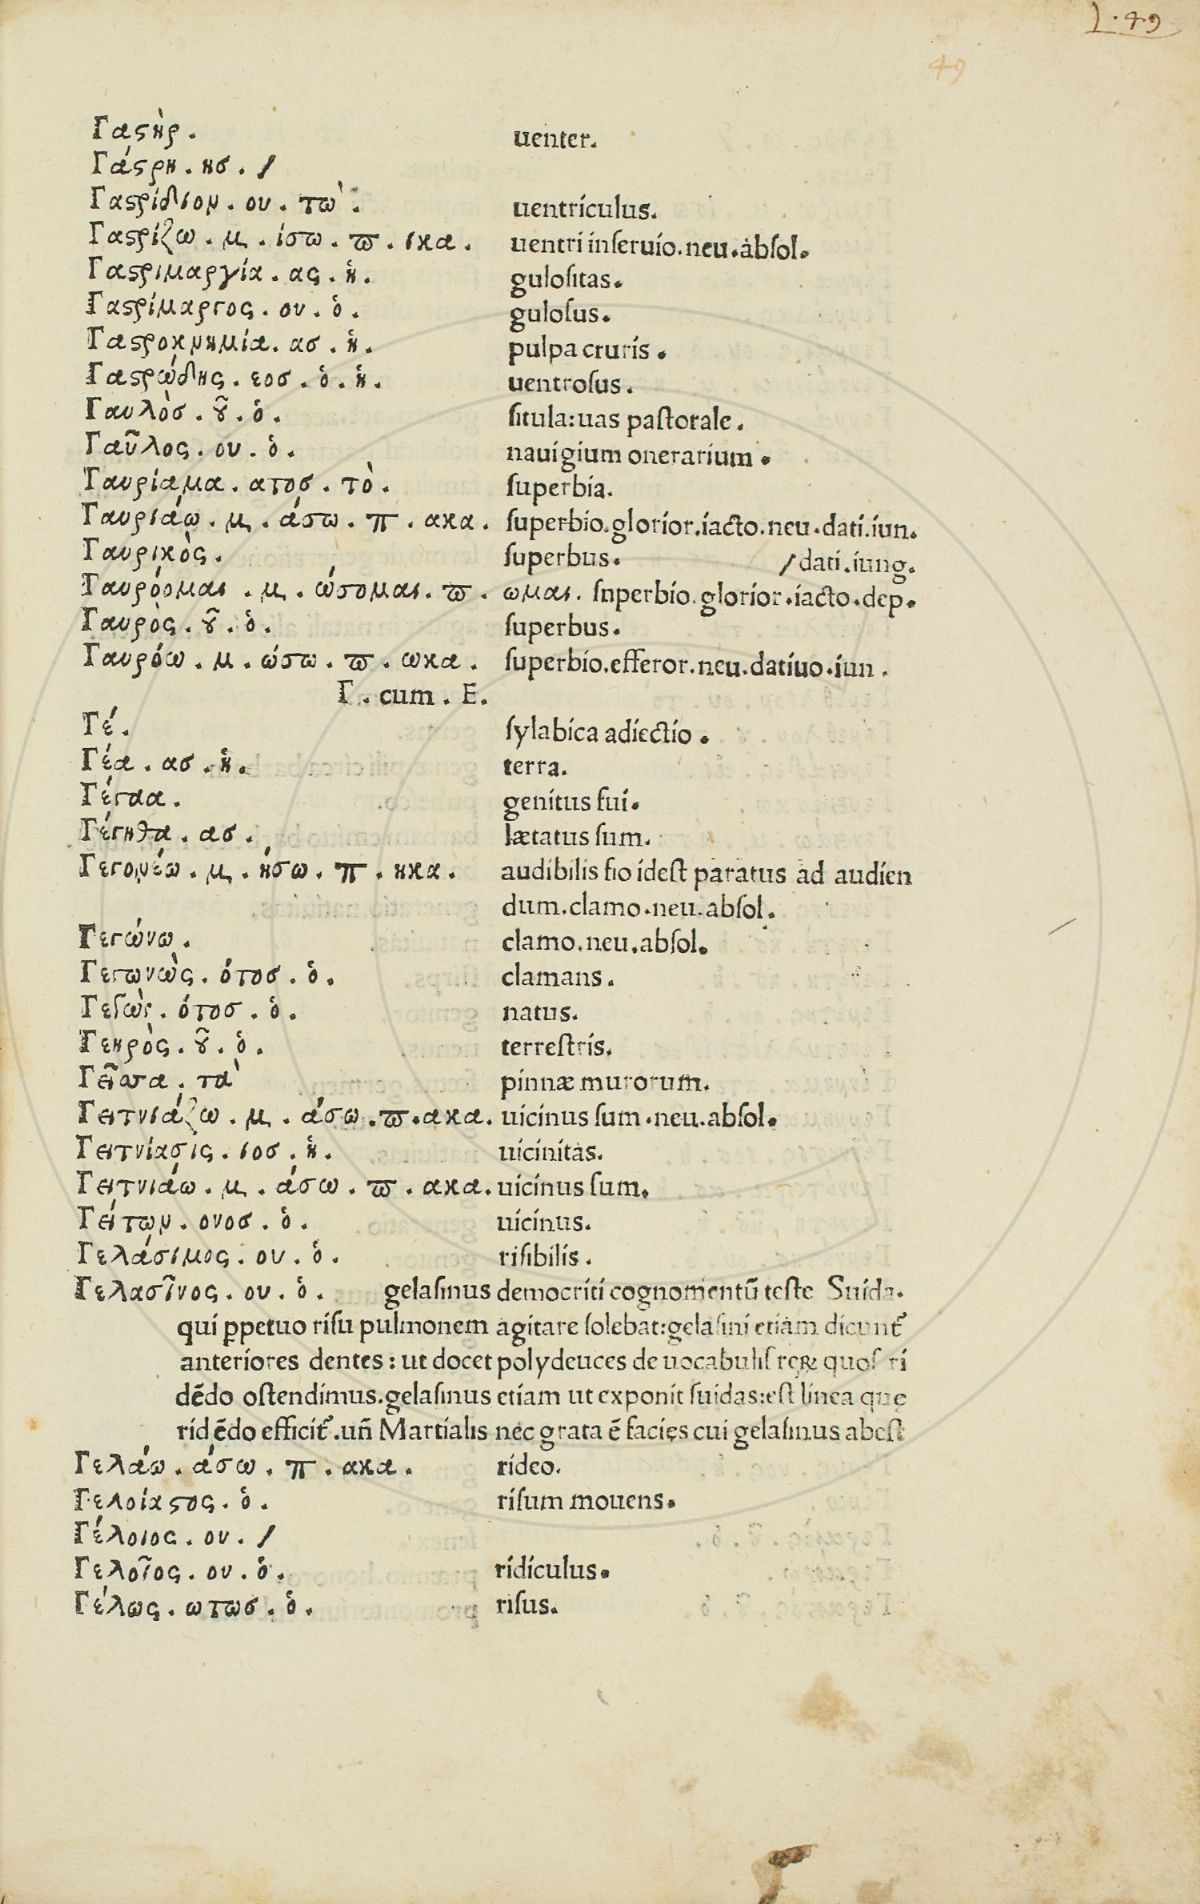 1.49
49
Γαϛὴρ. uenter.
Γάϛρη.ησ./
Γαϛρίδιον.ου.τω`. uentriculus.
Γαϛρίζω.μ.ίσω.ϖ.ικα. uentri inseruio.neu.absol.
Γαϛριμαργία.ας.ἡ. gulositas.
Γαϛρίμαργος.ου.ὁ. gulosus.
Γαϛροκνημία.ασ.ἡ. pulpa cruris.
Γαϛρώδης.εοσ.ὁ.ἡ. uentrosus.
Γαυλὸσ.ȣ͂.ὁ. situla:uas pastorale.
Γαῦλος.ου.ὁ. nauigium onerarium.
Γαυρίαμα.ατοσ.τὸ. superbia.
Γαυριάω.μ.άσω.π.ακα. superbio.glorior.iacto.neu.dati.iun.
Γαυρικὸς. superbus. /dati.iung.
Γαυρόομαι.μ.ώσομαι.ϖ.ωμαι. snperbio.glorior.iacto.dep.
Γαυρὸς.ȣ͂.ὁ. superbus.
Γαυρόω.μ.ώσω.ϖ.ωκα. superbio.efferor.neu.datiuo.iun.
Γ.cum.E.
Γέ. sylabica adiectio.
Γέα.ασ.ἡ. terra.
Γέγαα. genitus fui.
Γέγηθα.ασ. lætatus sum.
Γεγονέω.μ.ήσω.π.ηκα. audibilis fio idest paratus ad audien
dum.clamo.neu.absol.
Γεγώνω. clamo.neu.absol.
Γεγωνὼς.ότοσ.ὁ. clamans.
Γεγὼς.ότοσ.ὁ. natus.
Γεηρὸς.ȣ͂.ὁ. terrestris.
Γεῖσα.τὰ pinnæ murorum.
Γειτνιάζω.μ.άσω.ϖ.ακα. uicinus sum.neu.absol.
Γειτνίασις.ιοσ.ἡ. uicinitas.
Γειτνιάω.μ.άσω.ϖ.ακα. uicinus sum.
Γείτων.ονοσ.ὁ. uicinus.
Γελάσιμος.ου.ὁ. risibilis.
Γελασῖνος.ου.ὁ. gelasinus democriti cognomentū teste Suida.
qui ꝑpetuo risu pulmonem agitare solebat:gelasini etiam dicunt᷑
anteriores dentes:ut docet polydeuces de uocabulis reꝝ quos ri
dēdo ostendimus.gelasinus etiam ut exponit suidas:est linea que
ridēdo efficit᷑.uñ Martialis nec grata ē facies cui gelasinus abest
Γελάω.άσω.π.ακα. rideo.
Γελοίαϛος.ὁ. risum mouens.
Γέλοιος.ου./
Γελοῖος.ου.ὁ. ridiculus.
Γέλως.ωτωσ.ὁ. risus.